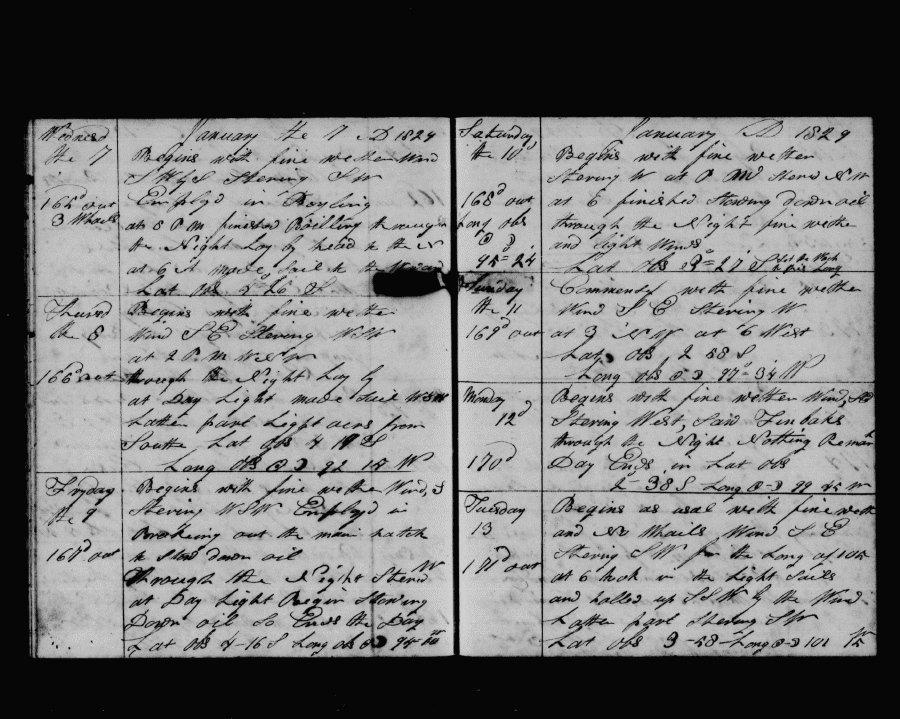 Wednesd
the 7
165d out
3 Whails
January the 7 AD 1829
Begins with fine wether Wind
Stering SW
Employd in Boyling
at 8 PM finished Boilling through
the Night Lay by head to the N
at 6 A made Sail to the
Lat Obs 5 26 S
Thursd
the 8
166d out
Begins with fine wether
Wind S E Stering WSW
at 2 P.M WSW
through the Night Lay by
at Day Light made Sail WSW
Latter part Light airs from
Southe Lat Obs 4 S
Long Obs 92 15 W
Fryday
the 9
167d out
Begins with fine wether Wind S
Stering WSW Employd in
Brakeing out the main hatch
to Stow down oil
through the Night Sterd W
at Day Light Begin Stowing
Down oil So Ends the Day
Lat Obs 4-16 S Long obs 95
Saturday
the 10d
168d out
Long obs
95=24
January AD 1829
Begins with fine wether
Stering W at PM Sterd N W
at 6 finished Stowing down oil
through the Night fine wethe
and light Winds
Lat obs 3=27 S
Sunday
the 11
169d out
Commencd with fine wether
Wind S E Stering W
at 3 N W at 6 West
Lat Obs 2 58 S
Long obs 97=34 W
Monday
12d
170d
Begins with fine wether Wind
Stering West, Saw Finbaks
through the Night Nothing Remark
Day Ends in Lat obs
2-38 S Long 99 W
Tuesday
13
171d out
Begins as usal with fine weth
and No Whails Wind S E
Sterig SW for the Long of 105
at 6 took in the Light Sails
and halled up SSW by the Wind
Latter part Stering SW
Lat obs 3-58 Long 101 15 W